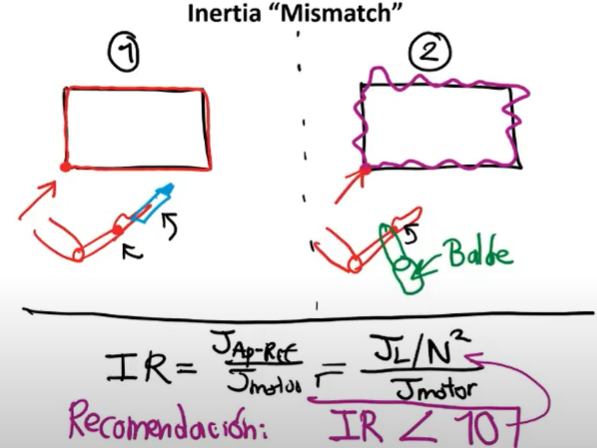 Inertia “Mismatch”
1
2
Balde
IR = J Ap-Ref / J motor = J L / N² / J motor
Recomendación: IR < 10